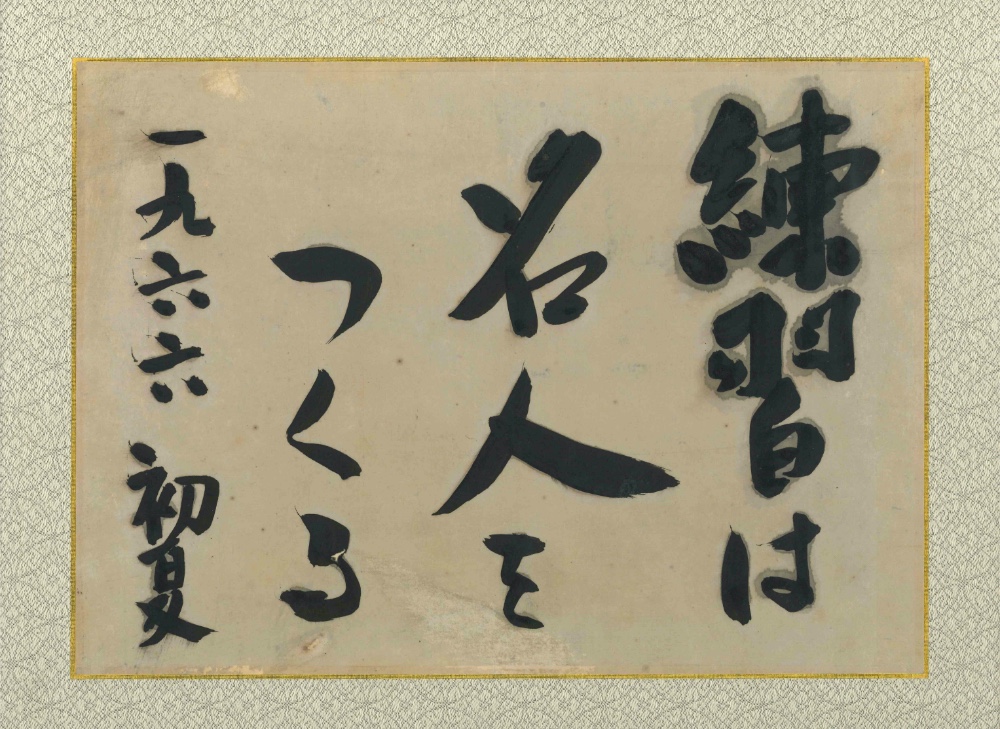 練習は
名人を
つくる
一九六六 初夏